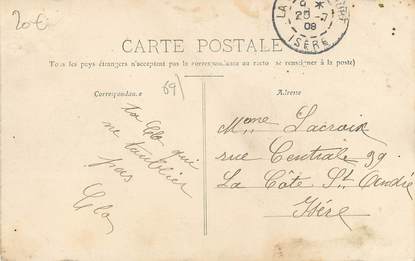 20€
CARTE POSTALE
Tous les pays étrangers n'acceptent pas la correspondance au recto (se renseigner à la poste)
Correspondance
69)
ta Clo qui
ne t'oublier
pas
Clo
Adresse
Mme Lacroix
rue Centrale 39
La Côte St André
Isère
LA
25 -7
08
ISÈRE